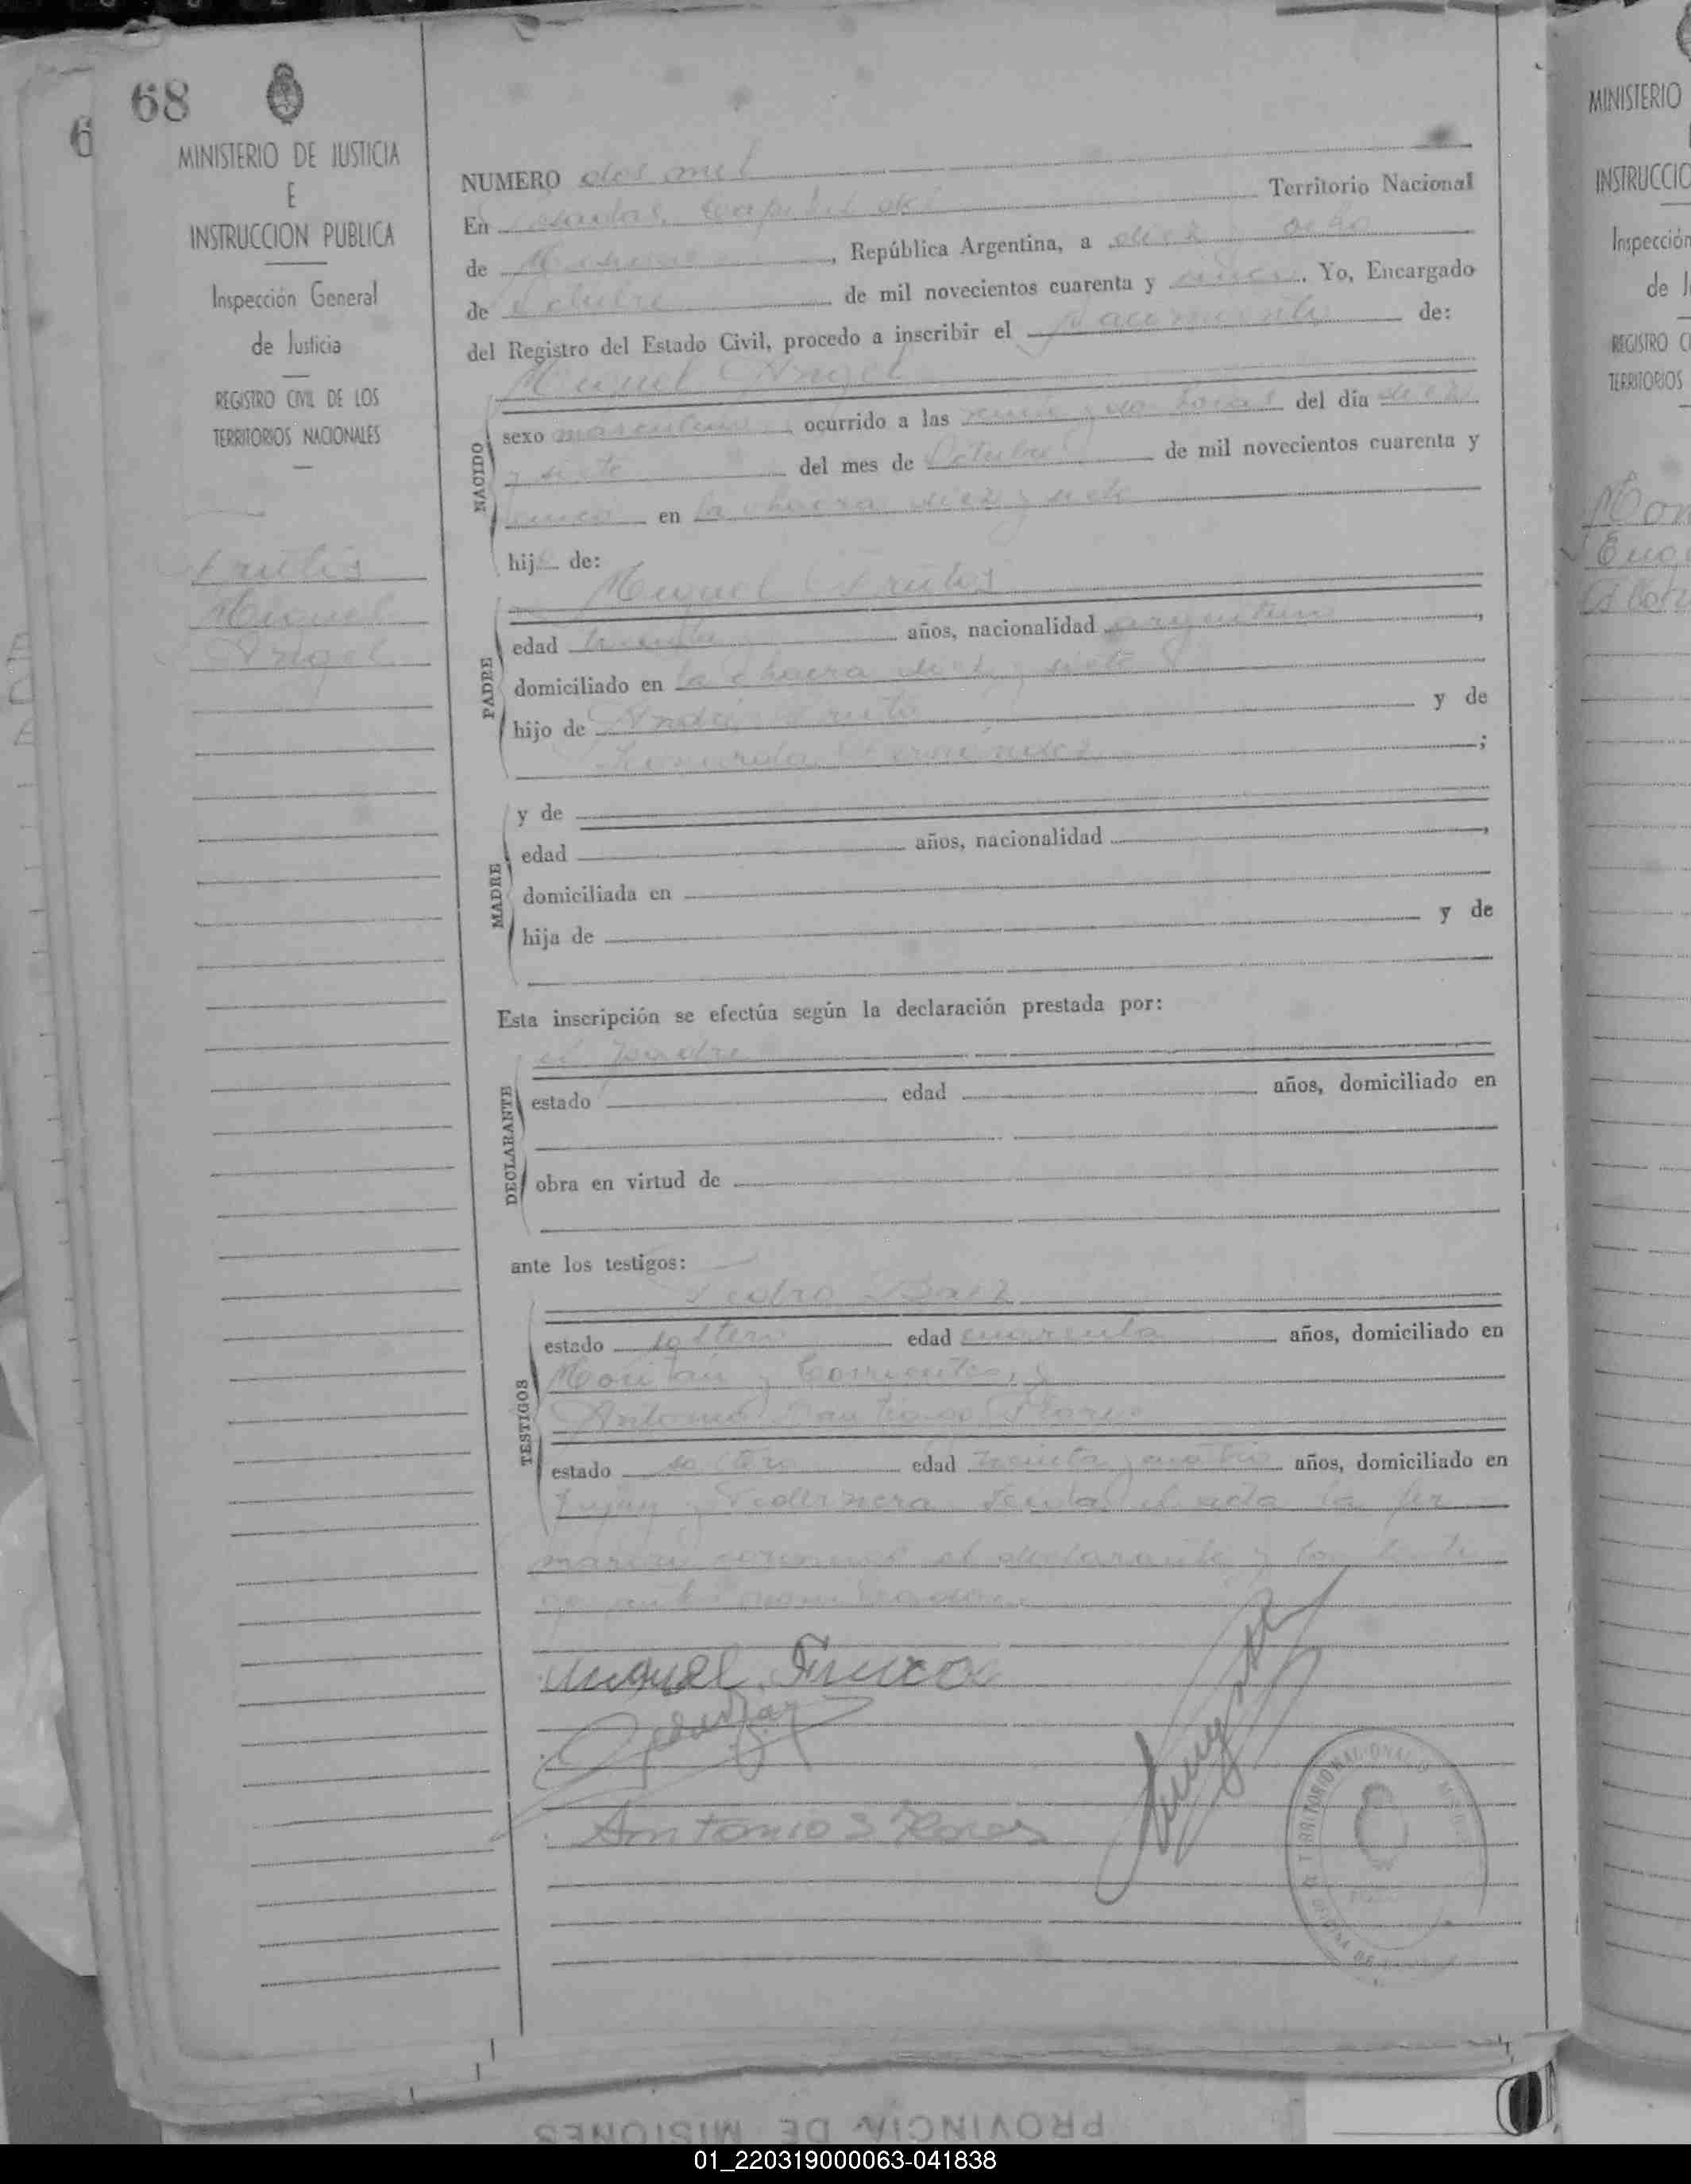 68
6
MINISTERIO DE JUSTICIA
E
INSTRUCCION PUBLICA
Inspección General
de Justicia
REGISTRO CIVIL DE LOS
TERRITORIOS NACIONALES
Miguel
Angel
NUMERO dos mil
En Posadas, capital del Territorio Nacional
de Misiones, República Argentina, a diez y ocho
de Octubre de mil novecientos cuarenta y cinco. Yo, Encargado
del Registro del Estado Civil, procedo a inscribir el nacimiento de:
Miguel Angel
NACIDO
sexo masculino ocurrido a las horas del día diez
y siete del mes de Octubre de mil novecientos cuarenta y
cinco en la chacra diez y siete
hij de:
Miguel
PADRE
edad treinta años, nacionalidad argentino,
domiciliado en la chacra diez y siete
hijo de Andrés y de
;
MADRE
y de
edad años, nacionalidad ,
domiciliada en
hija de y de
Esta inscripción se efectúa según la declaración prestada por:
el padre
DECLARANTE
estado edad años, domiciliado en
obra en virtud de
ante los testigos:
Pedro Baez
TESTIGOS
estado soltero edad cuarenta años, domiciliado en
y Corrientes, y
Antonio Santiago Flores
estado soltero edad treinta y cuatro años, domiciliado en
Jujuy y Pedernera. Leida el acta la fir
maron conmigo el declarante y los testi
Miguel
Antonio S Flores
TERRITORIO NACIONAL D
MINISTERIO
INSTRUCCIO
Inspección
de J
REGISTRO CI
TERRITORIOS
PROVINCIA DE MISIONES
01_220319000063-041838